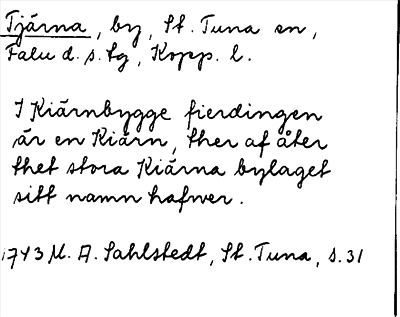 Tjärna, by, St. Tuna sn,
Falu d. s. lg, Kopp. l.
I Kiärnbygge fierdingen
är en Kiärn, ther af åter
thet stora Kiärna bylaget
sitt namn hafwer.
1743 M. A. Sahlstedt, St. Tuna, s. 31